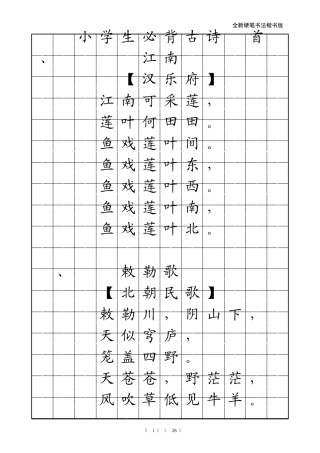 全新硬笔书法楷书版
小学生必背古诗 首
、 江南
【汉乐府】
江南可采莲，
莲叶何田田。
鱼戏莲叶间。
鱼戏莲叶东，
鱼戏莲叶西。
鱼戏莲叶南，
鱼戏莲叶北。
、 敕勒歌
【北朝民歌】
敕勒川，阴山下，
天似穹庐，
笼盖四野。
天苍苍，野茫茫，
风吹草低见牛羊。
| 1 | | 26 |